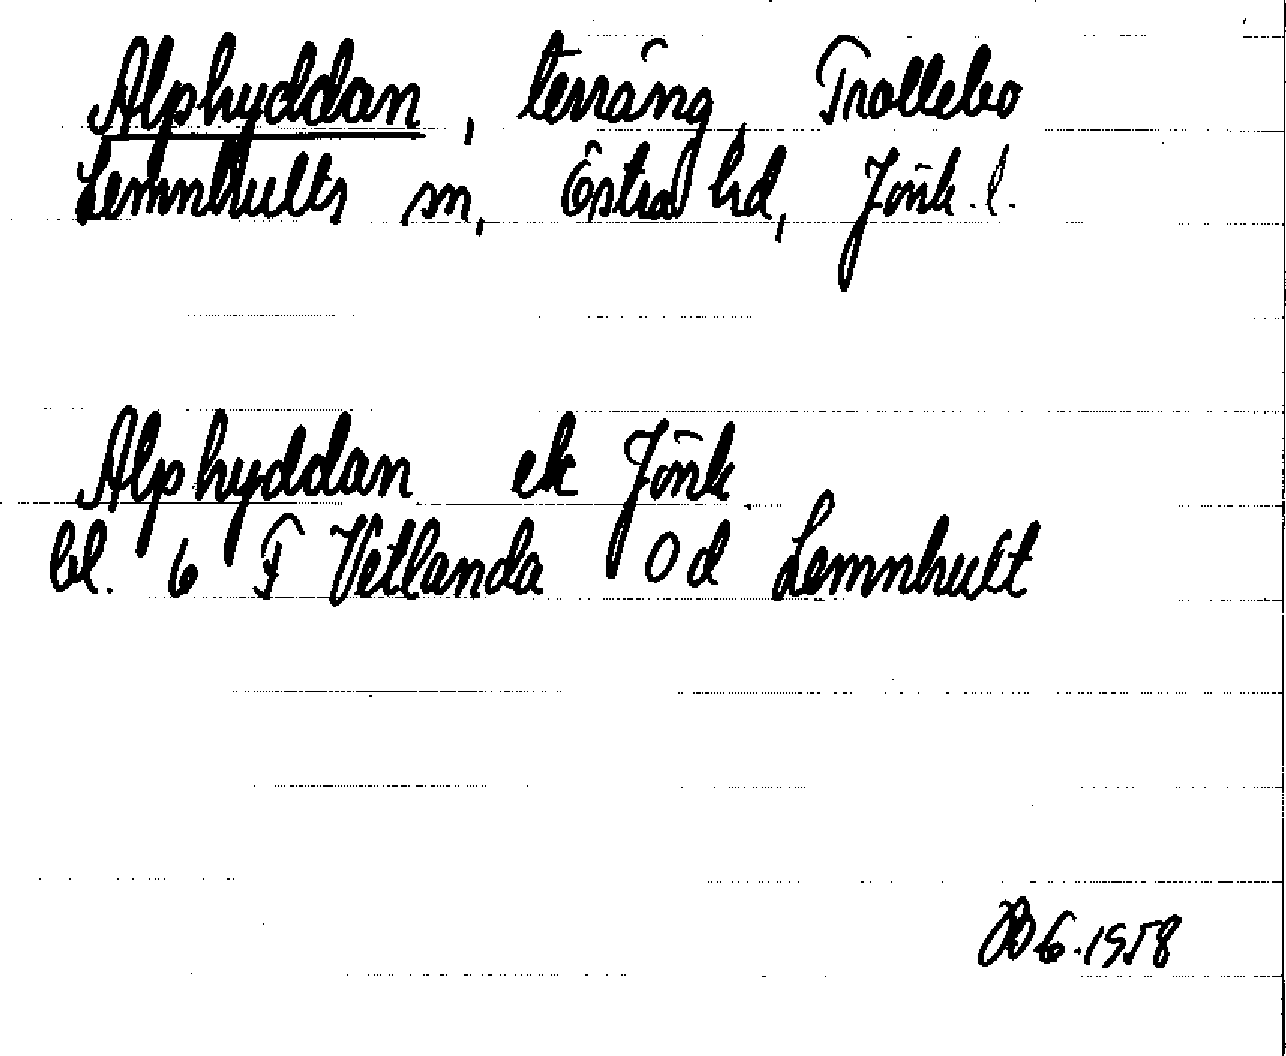 Alphyddan, terräng, Trollebo
Lemnhults sn, Östra hd, Jönk. l.
Alphyddan ek Jönk
bl. 6 F Vetlanda 0 d Lemnhult
6.1958